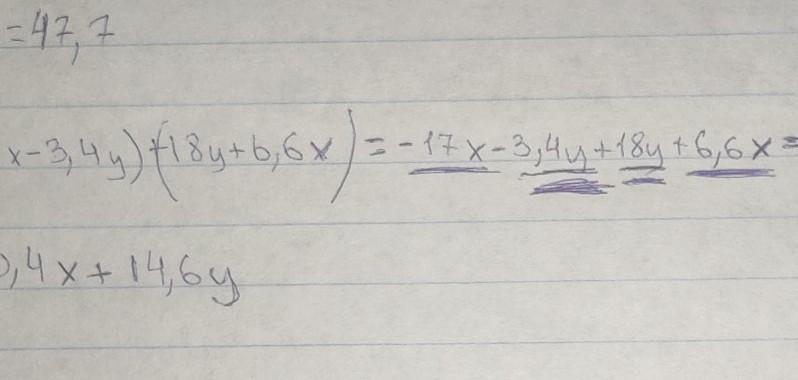 =47,7
x-3,4y)+(18y+6,6x)=-17x-3,4y+18y+6,6x=
,4x+14,6y